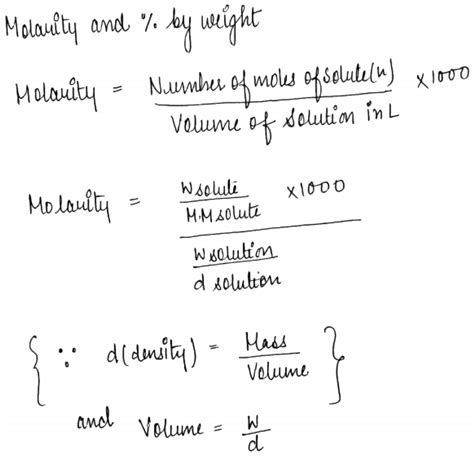 Molarity and % by weight
Molarity = Number of moles of solute(n) / Volume of solution in L ×1000
Molarity = W solute / MM solute ×1000 / W solution / d solution
{ ∵ d(density) = Mass / Volume }
and Volume = W / d